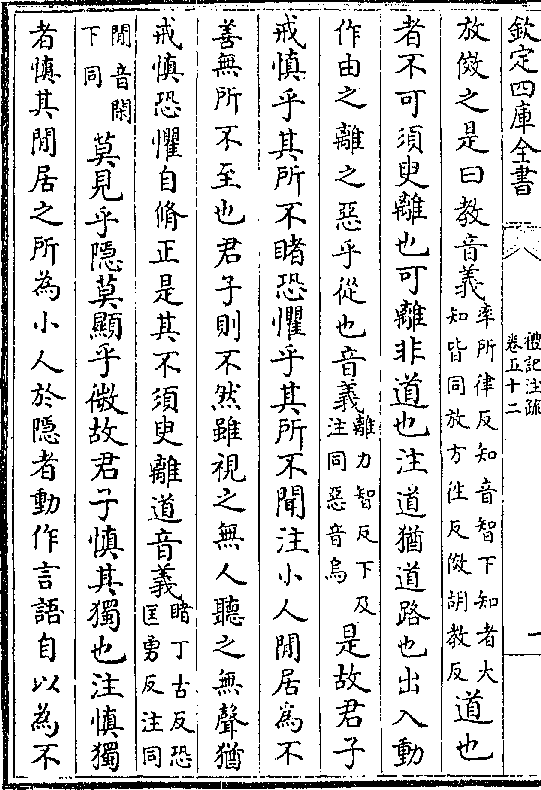 欽定四庫全書
禮記注疏
卷五十二
一
放傚之是曰教音義率所律反知音智下知者大
知皆同放方徃反傚胡教反道也
者不可須臾離也可離非道也注道猶道路也出入動
作由之離之惡乎從也音義離力智反下及
注同惡音烏是故君子
戒慎乎其所不睹恐懼乎其所不聞注小人閒居為不
善無所不至也君子則不然雖視之無人聽之無聲猶
戒慎恐懼自脩正是其不須臾離道音義睹丁古反恐
匡勇反注同
閒音閑
下同莫見乎隱莫顯乎微故君子慎其獨也注慎獨
者慎其閒居之所為小人於隱者動作言語自以為不